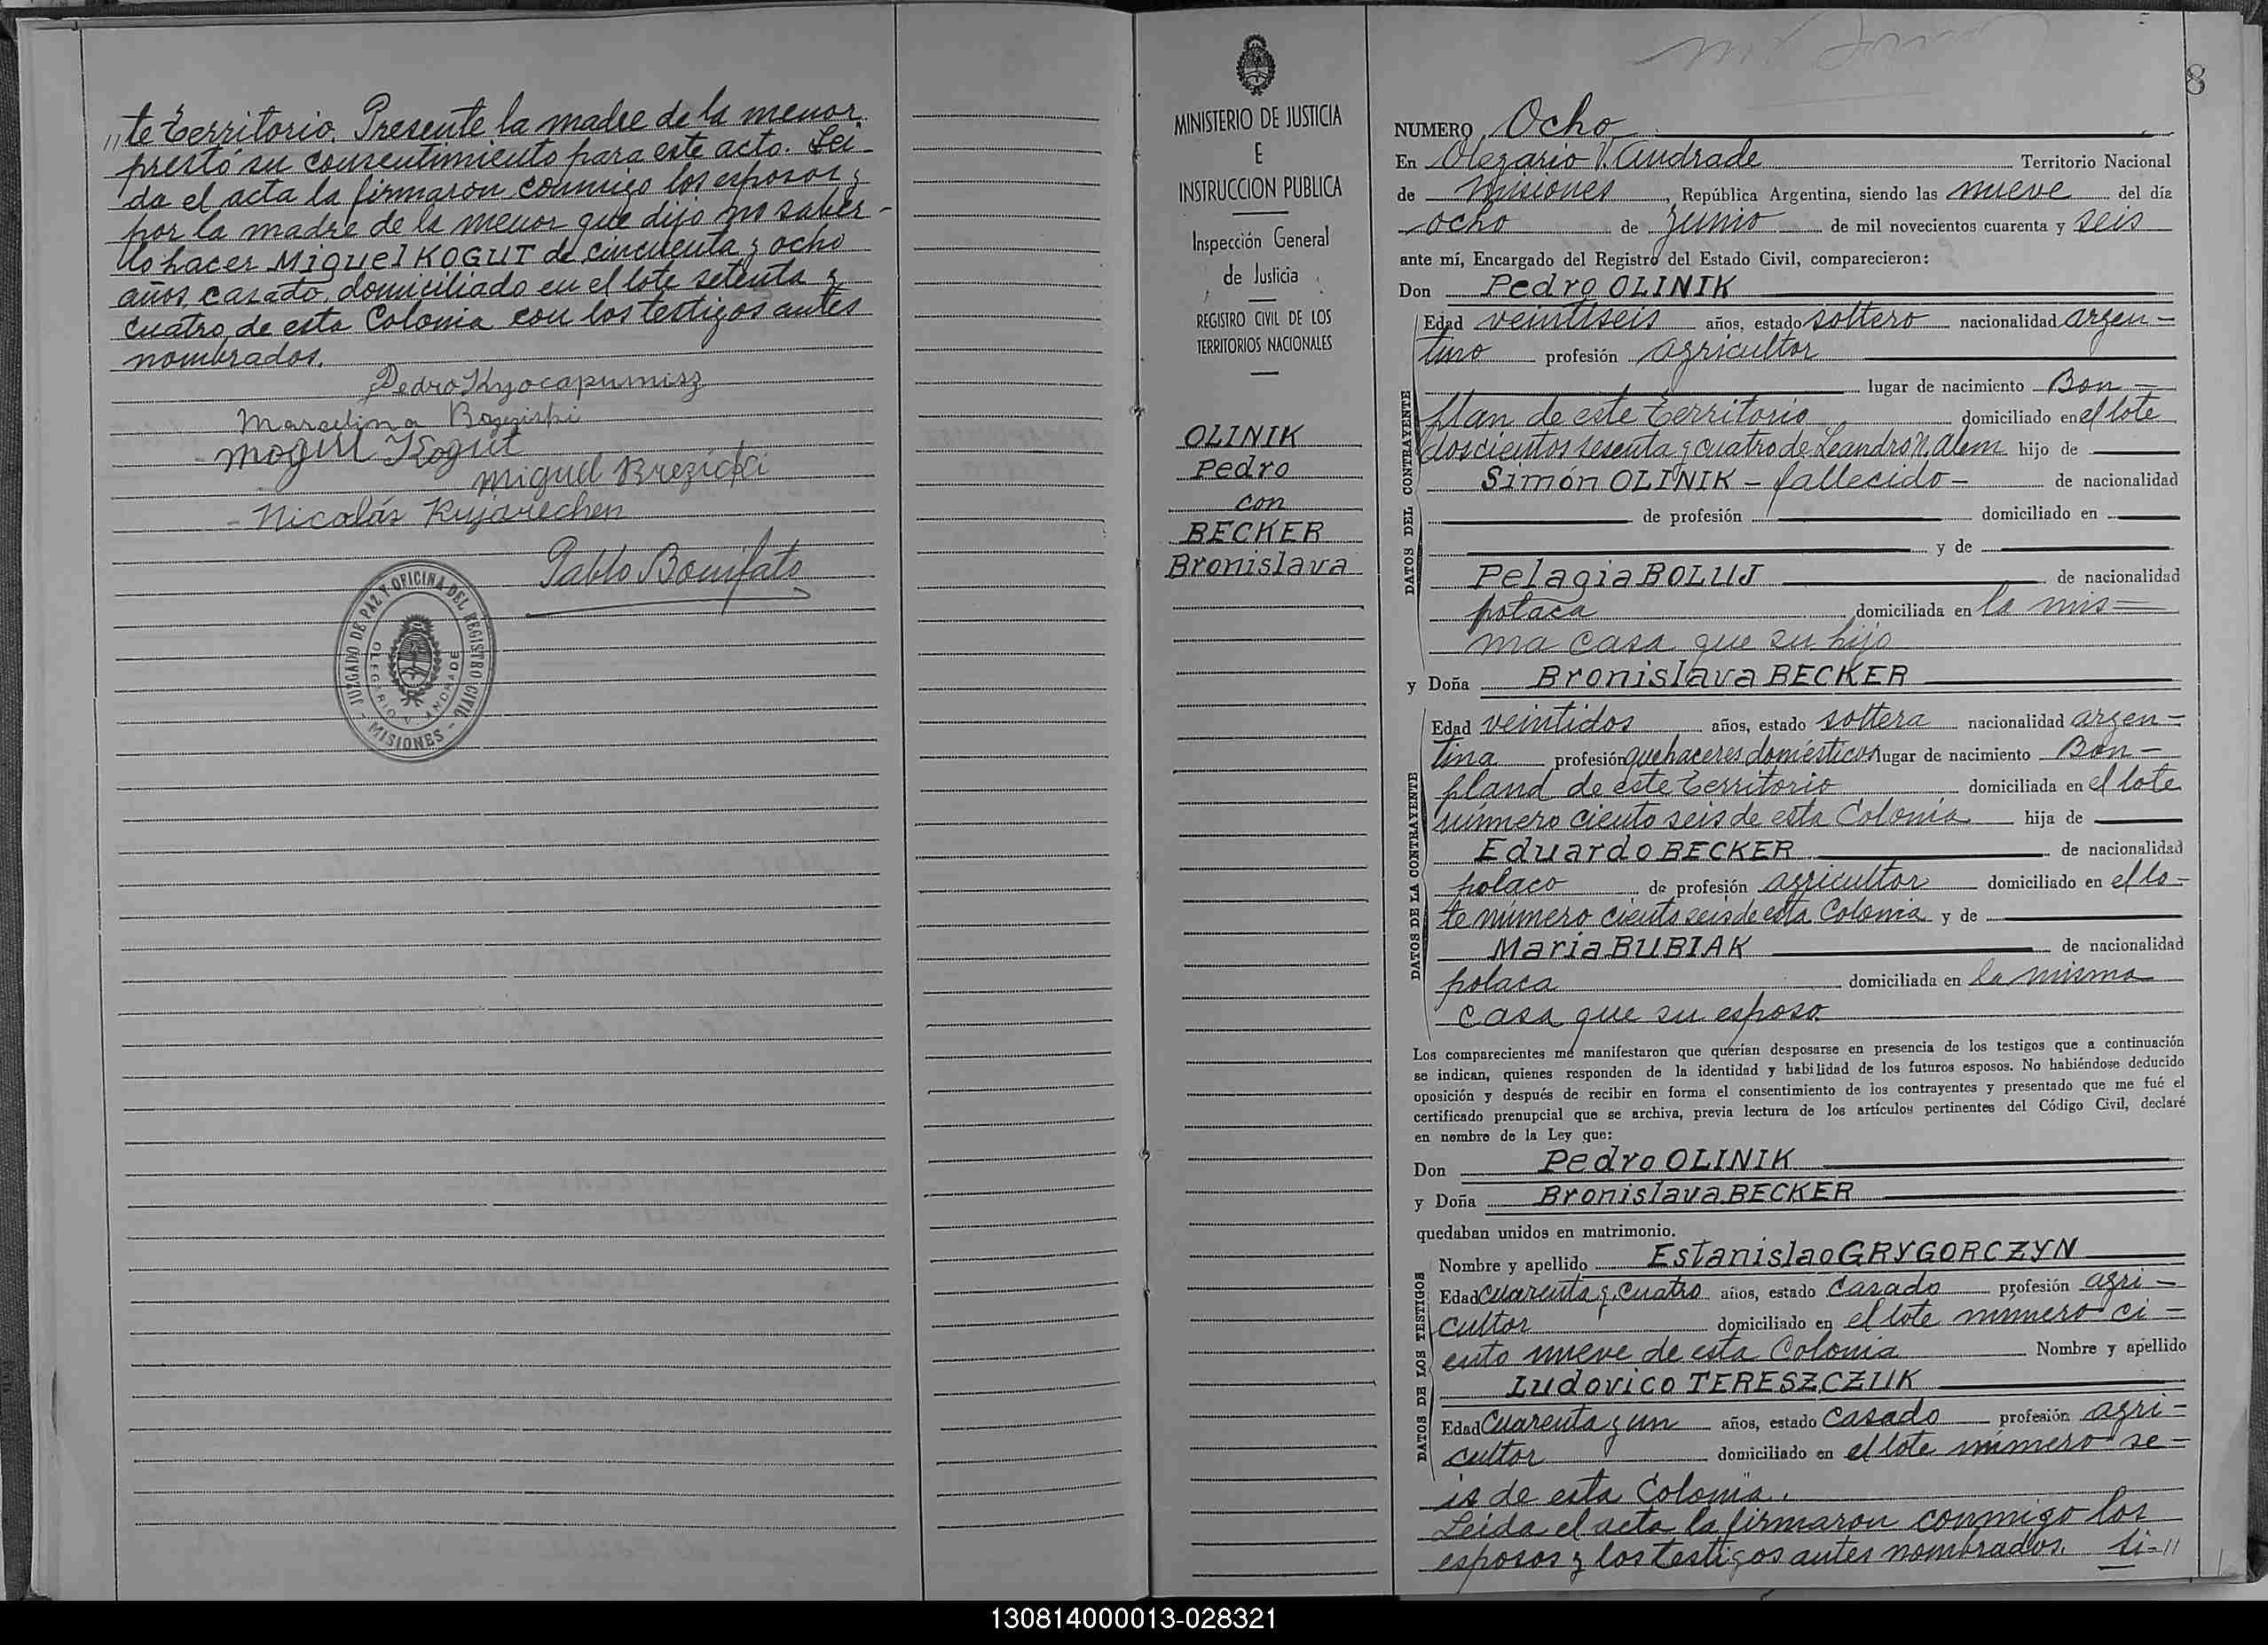 "te Territorio. Presente la madre de la menor
prestó su consentimiento para este acto. Lei-
da el acta la firmaron conmigo los esposos y
por la madre de la menor que dijo no saber-
lo hacer Miguel KOGUT de cincuenta y ocho
años, casado, domiciliado en el lote setenta y
cuatro de esta Colonia con los testigos antes
nombrados.
Marcelina
Kogut
Miguel Brezicki
Nicolás
Pablo Bonifato
JUZGADO DE PAZ Y OFICINA DEL REGISTRO CIVIL
OLEGARIO V. ANDRADE
- MISIONES -
MINISTERIO DE JUSTICIA
E
INSTRUCCION PUBLICA
Inspección General
de Justicia
REGISTRO CIVIL DE LOS
TERRITORIOS NACIONALES
OLINIK
Pedro
con
BECKER
Bronislava
8
NUMERO Ocho
En Olegario V. Andrade Territorio Nacional
de Misiones, República Argentina, siendo las nueve del día
ocho de Junio de mil novecientos cuarenta y seis
ante mí, Encargado del Registro del Estado Civil, comparecieron:
Don Pedro OLINIK
DATOS DEL CONTRAYENTE
Edad veintiseis años, estado soltero nacionalidad argen-
tino profesión agricultor
lugar de nacimiento Bon-
plan de este Territorio domiciliado en el lote
doscientos sesenta y cuatro de Leandro N. Alem hijo de
Simón OLINIK - fallecido - de nacionalidad
de profesión domiciliado en
y de
Pelagia BOLUJ de nacionalidad
polaca domiciliada en la mis-
ma casa que su hijo
y Doña Bronislava BECKER
DATOS DE LA CONTRAYENTE
Edad veintidos años, estado soltera nacionalidad argen-
tina profesión quehaceres domésticos lugar de nacimiento Bon-
pland de este Territorio domiciliada en el lote
número ciento seis de esta Colonia hija de
Eduardo BECKER de nacionalidad
polaco de profesión agricultor domiciliado en el lo-
te número ciento seis de esta Colonia y de
Maria BUBIAK de nacionalidad
polaca domiciliada en la misma
casa que su esposo
Los comparecientes me manifestaron que querían desposarse en presencia de los testigos que a continuación
se indican, quienes responden de la identidad y habilidad de los futuros esposos. No habiéndose deducido
oposición y después de recibir en forma el consentimiento de los contrayentes y presentado que me fué el
certificado prenupcial que se archiva, previa lectura de los artículos pertinentes del Código Civil, declaré
en nombre de la Ley que:
Don Pedro OLINIK
y Doña Bronislava BECKER
quedaban unidos en matrimonio.
DATOS DE LOS TESTIGOS
Nombre y apellido Estanislao GRYGORCZYN
Edad cuarenta y cuatro años, estado casado profesión agri-
cultor domiciliado en el lote número ci-
ento nueve de esta Colonia Nombre y apellido
Ludovico TERESZCZUK
Edad cuarenta y un años, estado casado profesión agri-
cultor domiciliado en el lote número se-
is de esta Colonia.
Leida el acta la firmaron conmigo los
esposos y los testigos antes nombrados. Si-"
130814000013-028321